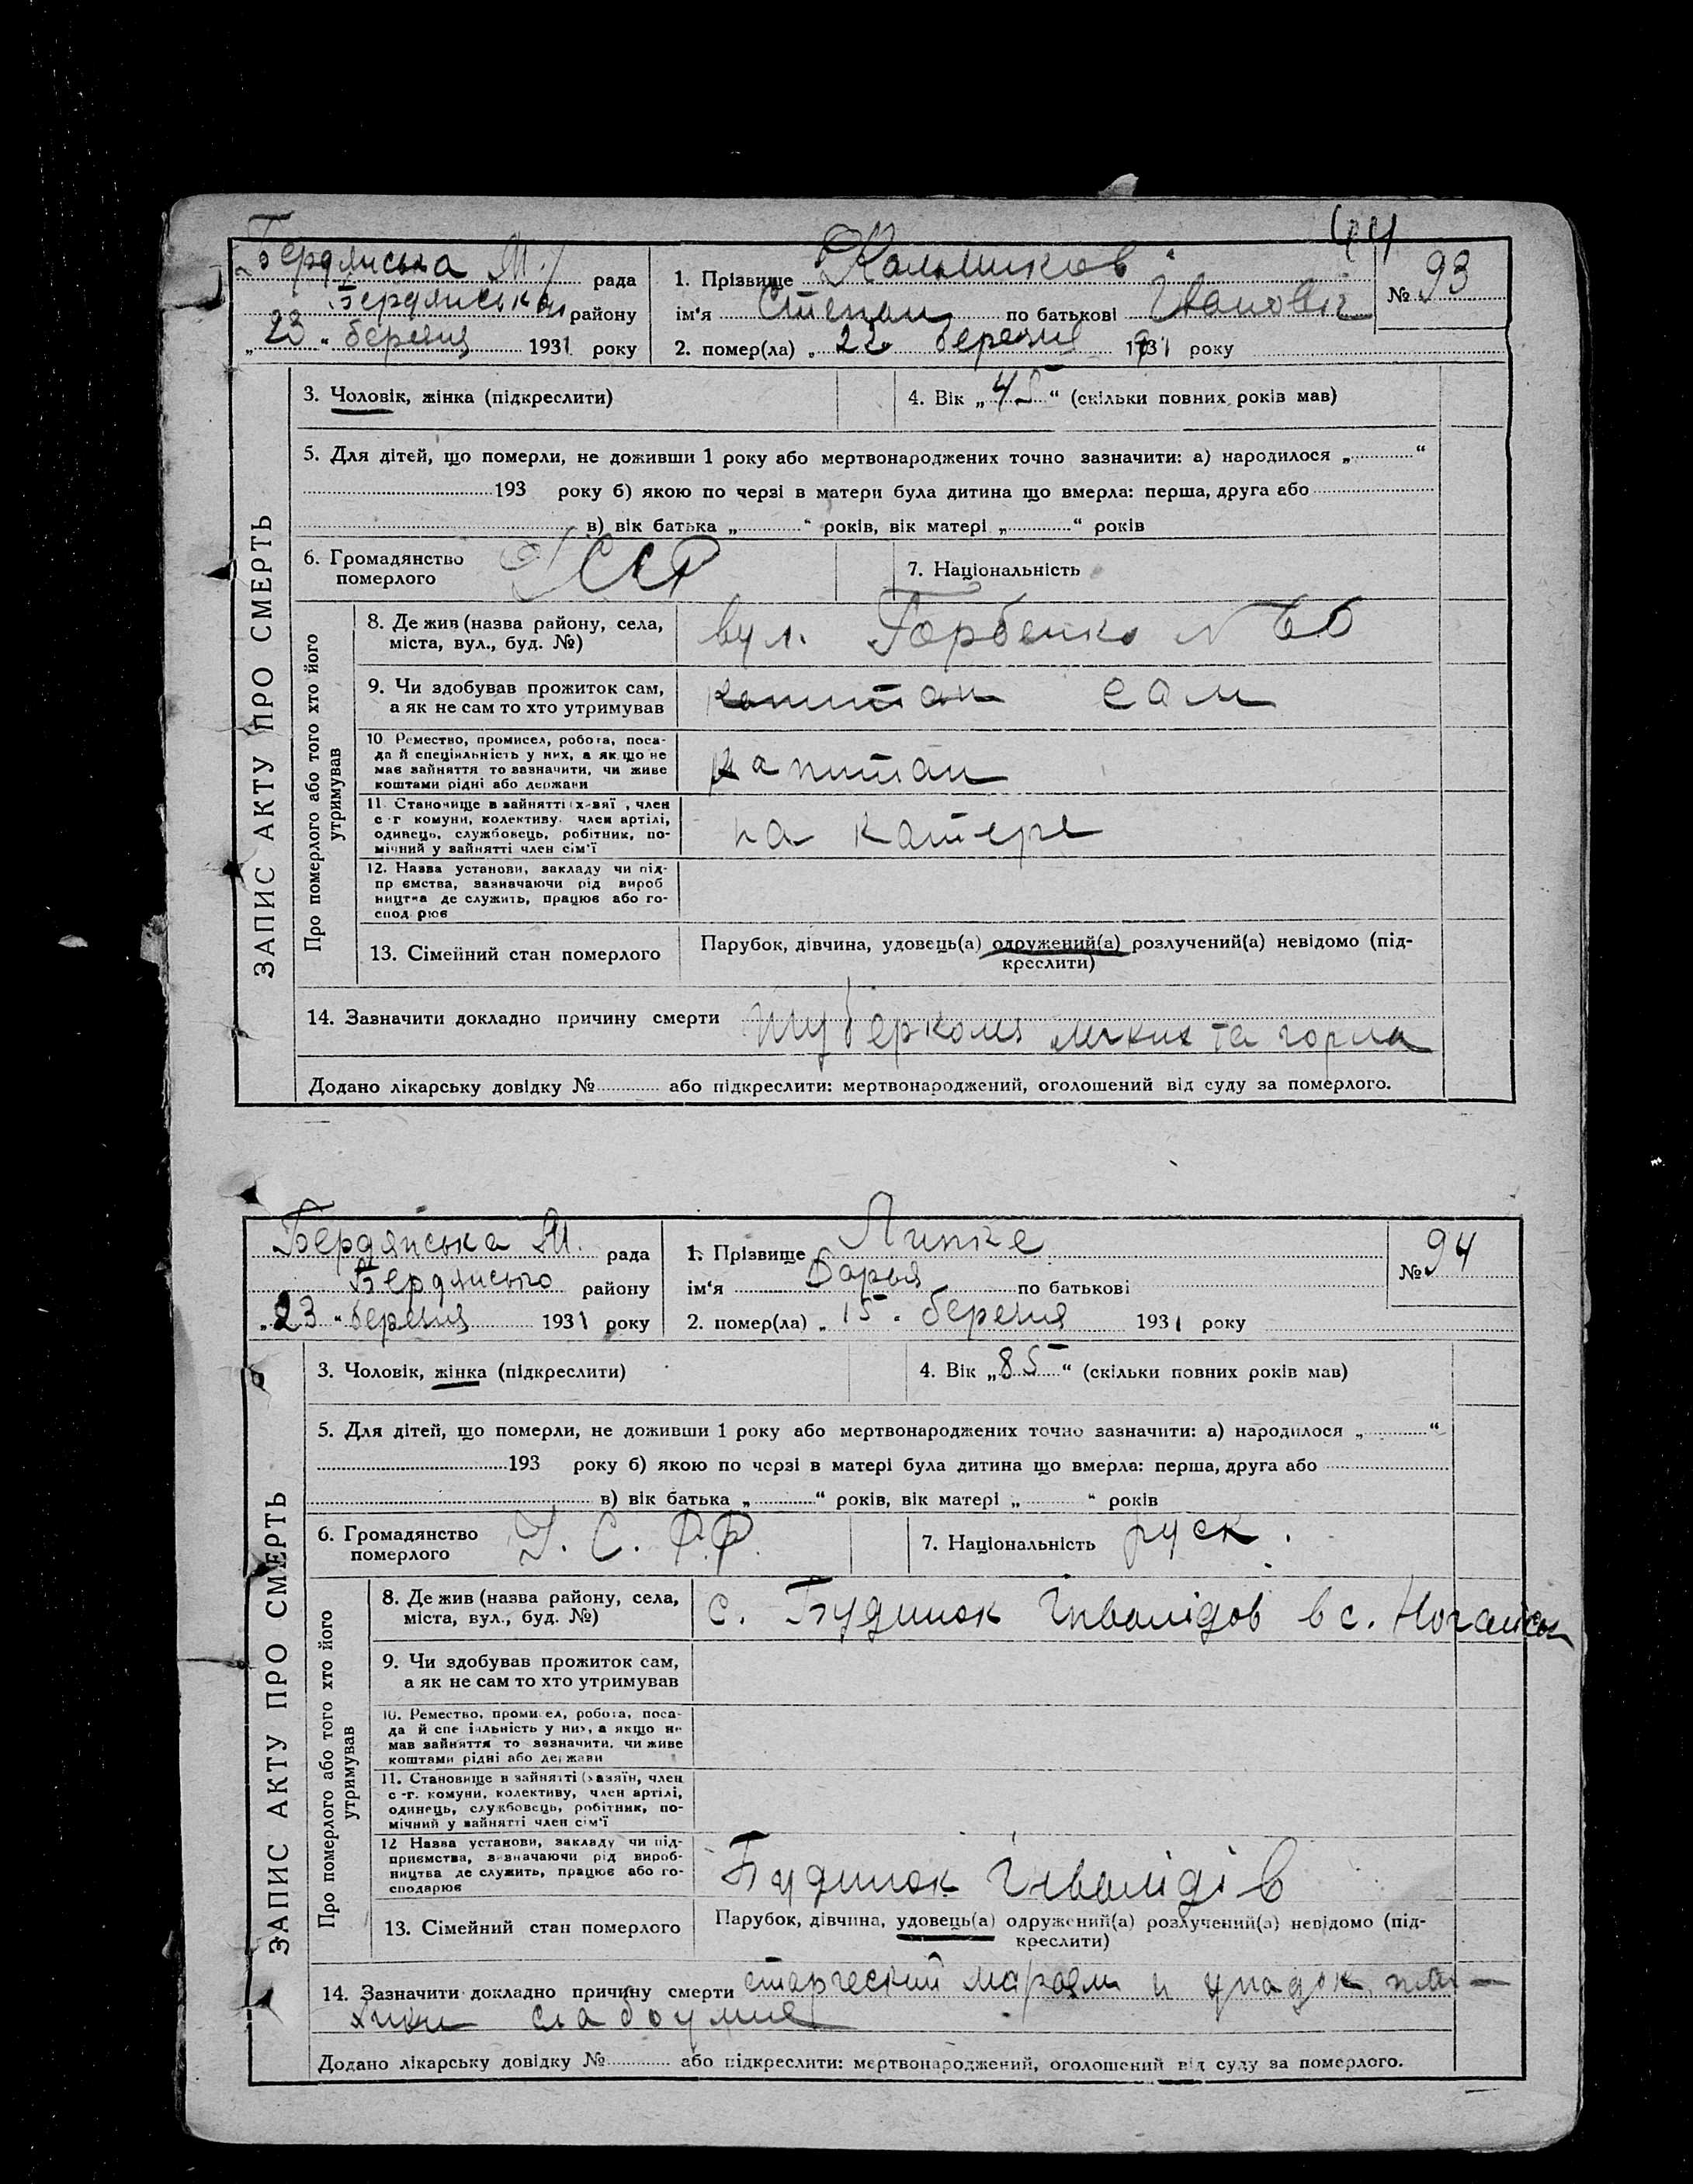 44
Бердянська М. рада
Бердянська району
„23“ березня 1931 року
1. Прізвище Кальмиков
ім‘я Степан по батькові Іванович
2. помер(ла) „22 березня 1931 року
№ 93
ЗАПИС АКТУ ПРО СМЕРТЬ
3. Чоловік, жінка (підкреслити)
4. Вік „45“ (скільки повних років мав)
5. Для дітей, що померли, не доживши 1 року або мертвонароджених точно зазначити: а) народилося „ “
193 року б) якою по черзі в матери була дитина що вмерла: перша, друга або
в) вік батька „ “ років, вік матері „ “ років
6. Громадянство
померлого
УССР
7. Національність
Про померлого або того хто його
утримував
8. Де жив (назва району, села,
міста, вул., буд. №)
вул. Горбенко №
9. Чи здобував прожиток сам,
а як не сам то хто утримував
капитан сам
10. Ремество, промисел, робота, поса-
да й спеціяльність у них, а як що не
мав зайняття то зазначити, чи живе
коштами рідні або держави
капитан
11. Становище в зайнятті (х-зяї , член
с-г комуни, колективу. член артілі,
одинець, службовець, робітник, по-
мічний у зайнятті член сім‘ї
на катере
12. Назва установи, закладу чи під-
пр ємства, зазначаючи рід вироб
ництва де служить, працює або го-
спод рює
13. Сімейний стан померлого
Парубок, дівчина, удовець(а) одружений(а) розлучений(а) невідомо (під-
креслити)
14. Зазначити докладно причину смерти туберкольз легких та горла
Додано лікарську довідку № або підкреслити: мертвонароджений, оголошений від суду за померлого.
Бердянська М. рада
Бердянського району
„23“ березня 1931 року
1. Прізвище Липке
ім‘я Дарья по батькові
2. помер(ла) „15“ березня 1931 року
№ 94
ЗАПИС АКТУ ПРО СМЕРТЬ
3. Чоловік, жінка (підкреслити)
4. Вік „85“ (скільки повних років мав)
5. Для дітей, що померли, не доживши 1 року або мертвонароджених точно зазначити: а) народилося „ “
193 року б) якою по черзі в матері була дитина що вмерла: перша, друга або
в) вік батька „ “ років, вік матері „ “ років
6. Громадянство
померлого
У. С. Р.Р.
7. Національність руск.
Про померлого або того хто його
утримував
8. Де жив (назва району, села,
міста, вул., буд. №)
с. Будинок Інвалідов в с. Ногайськ
9. Чи здобував прожиток сам,
а як не сам то хто утримував
10. Ремество, промисел, робота, поса-
да й спеціяльність у них, а якщо не
мав зайняття то зазначити, чи живе
коштами рідні або держави
11. Становище в зайнятті (хазяїн, член
с-г. комуни, колективу, член артілі,
одинець, службовець, робітник, по-
мічний у зайнятті член сім‘ї
12 Назва установи, закладу чи під-
приємства, зазначаючи рід вироб-
ництва де служить, працює або го-
сподарює
Будинок Інвалідів
13. Сімейний стан померлого
Парубок, дівчина, удовець(а) одружений(а) розлучений(а) невідомо (під-
креслити)
14. Зазначити докладно причину смерти старческий маразм и упадок
слабоумие
Додано лікарську довідку № або підкреслити: мертвонароджений, оголошений від суду за померлого.